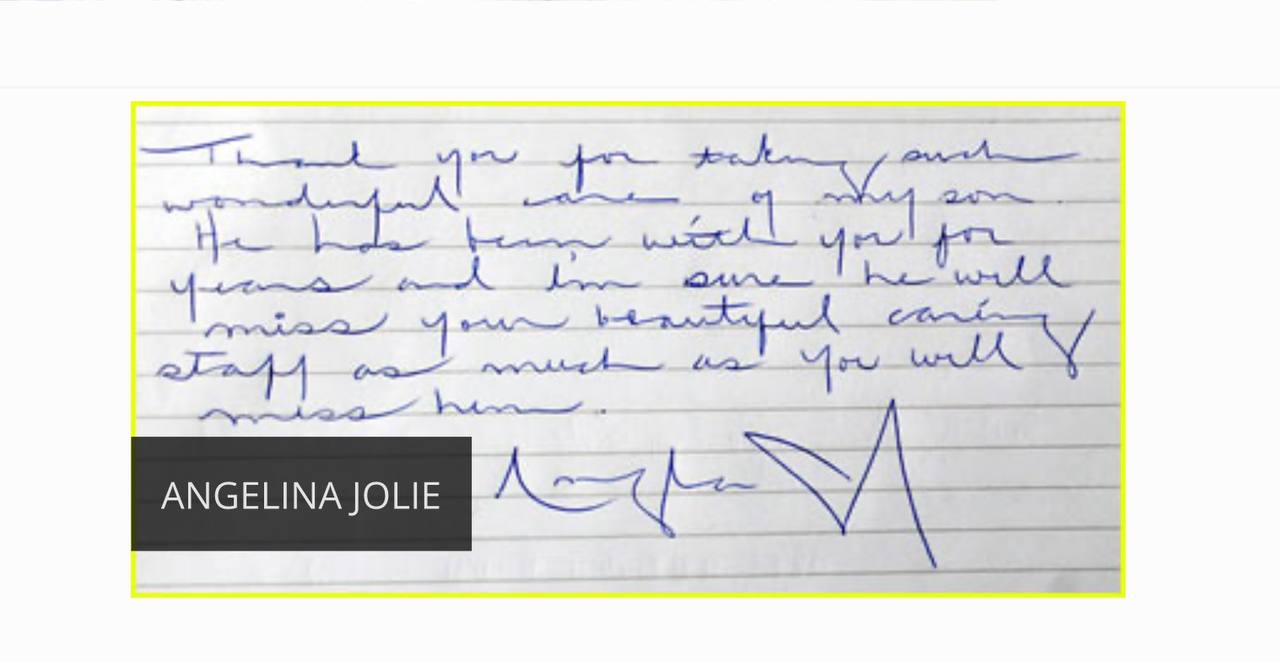 Thank you for taking such
wonderful care of my son.
He has been with you for
years and I'm sure he will
miss your beautiful caring
staff as much as you will
miss him.
ANGELINA JOLIE